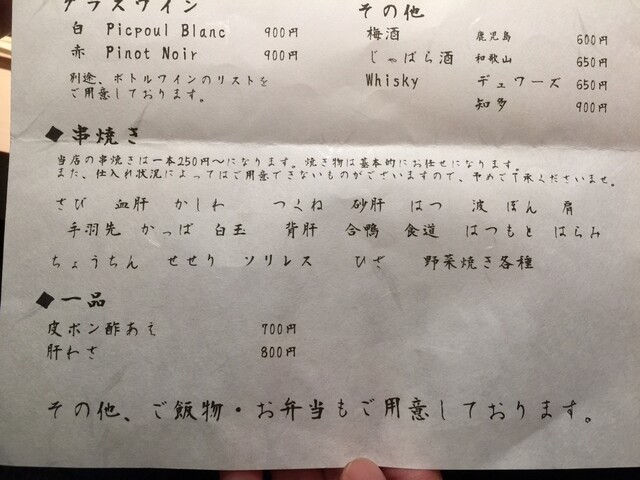 グラスワイン
白 Picpoul Blanc 900円
赤 Pinot Noir 900円
別途、ボトルワインのリストを
ご用意しております。
その他
梅酒 鹿児島 600円
じゃばら酒 和歌山 650円
Whisky デュワーズ 650円
知多 900円
◆串焼き
当店の串焼きは一本250円～になります。焼き物は基本的にお任せになります。
また、仕入れ状況によってはご用意できないものがございますので、予めご了承くださいませ。
さび 血肝 かしわ つくね 砂肝 はつ 波 ぼん 肩
手羽先 かっぱ 白玉 背肝 合鴨 食道 はつもと はらみ
ちょうちん せせり ソリレス ひざ 野菜焼き各種
◆一品
皮ポン酢あえ 700円
肝わさ 800円
その他、ご飯物・お弁当もご用意しております。